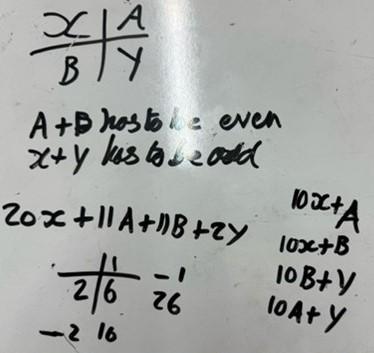 x A
B Y
A+B has to be even
x+y has to be odd
20x+11A+11B+2y
10x+A
10x+B
10B+Y
10A+Y
1 -1
2 6 26
-2 16